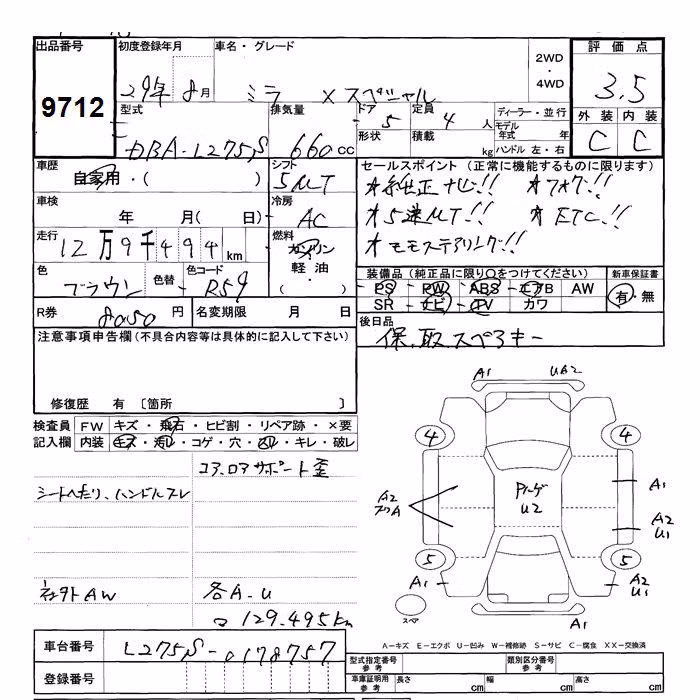 出品番号 初度登録年月 車名・グレード 評価点
9712 29年 8月 ミラ Xスペシャル 2WD・4WD 3.5
型式 排気量 ドア 定員 ディーラー・並行 外装 内装
DBA-L275S 660cc 5 4人 モデル年式 年 C C
形状 積載 kg ハンドル 左・右
車歴 シフト セールスポイント (正常に機能するものに限ります)
自家用・( ) 5MT ★純正ナビ!! ★フォグ!!
車検 冷房 ★5速MT!! ★ETC!!
年 月( 日) AC ★モモステアリング!!
走行 燃料
12万9千494km ガソリン 軽油・( )
色 色替 色コード 装備品 (純正品に限り○をつけてください) 新車保証書
ブラウン R59 PS・PW・ABS・エアB AW 有・無
SR・ナビ・TV カワ
R券 8050円 名変期限 月 日 後日品
保.取.スペアキー
注意事項申告欄 (不具合内容等は具体的に記入して下さい)
修復歴 有 [箇所 ]
検査員 FW キズ・飛石・ヒビ割・リペア跡・×要
記入欄 内装 キズ・汚れ・コゲ・穴・スレ・キレ・破レ
コア.ロアサポート歪
シートへたり.ハンドルスレ
社外AW 各A.U
129.495km
A1 UA2
4 4
A2 A1
Pルーフ U2
A2 U1
5 5
A1 A2 U1
スペア A1
A-キズ E-エクボ U-凹み W-補修跡 S-サビ C-腐食 XX-交換済
車台番号 L275S-0178757
型式指定番号 参考 類別区分番号 参考
登録番号 車庫証明用 参考 長さ cm 幅 cm 高さ cm